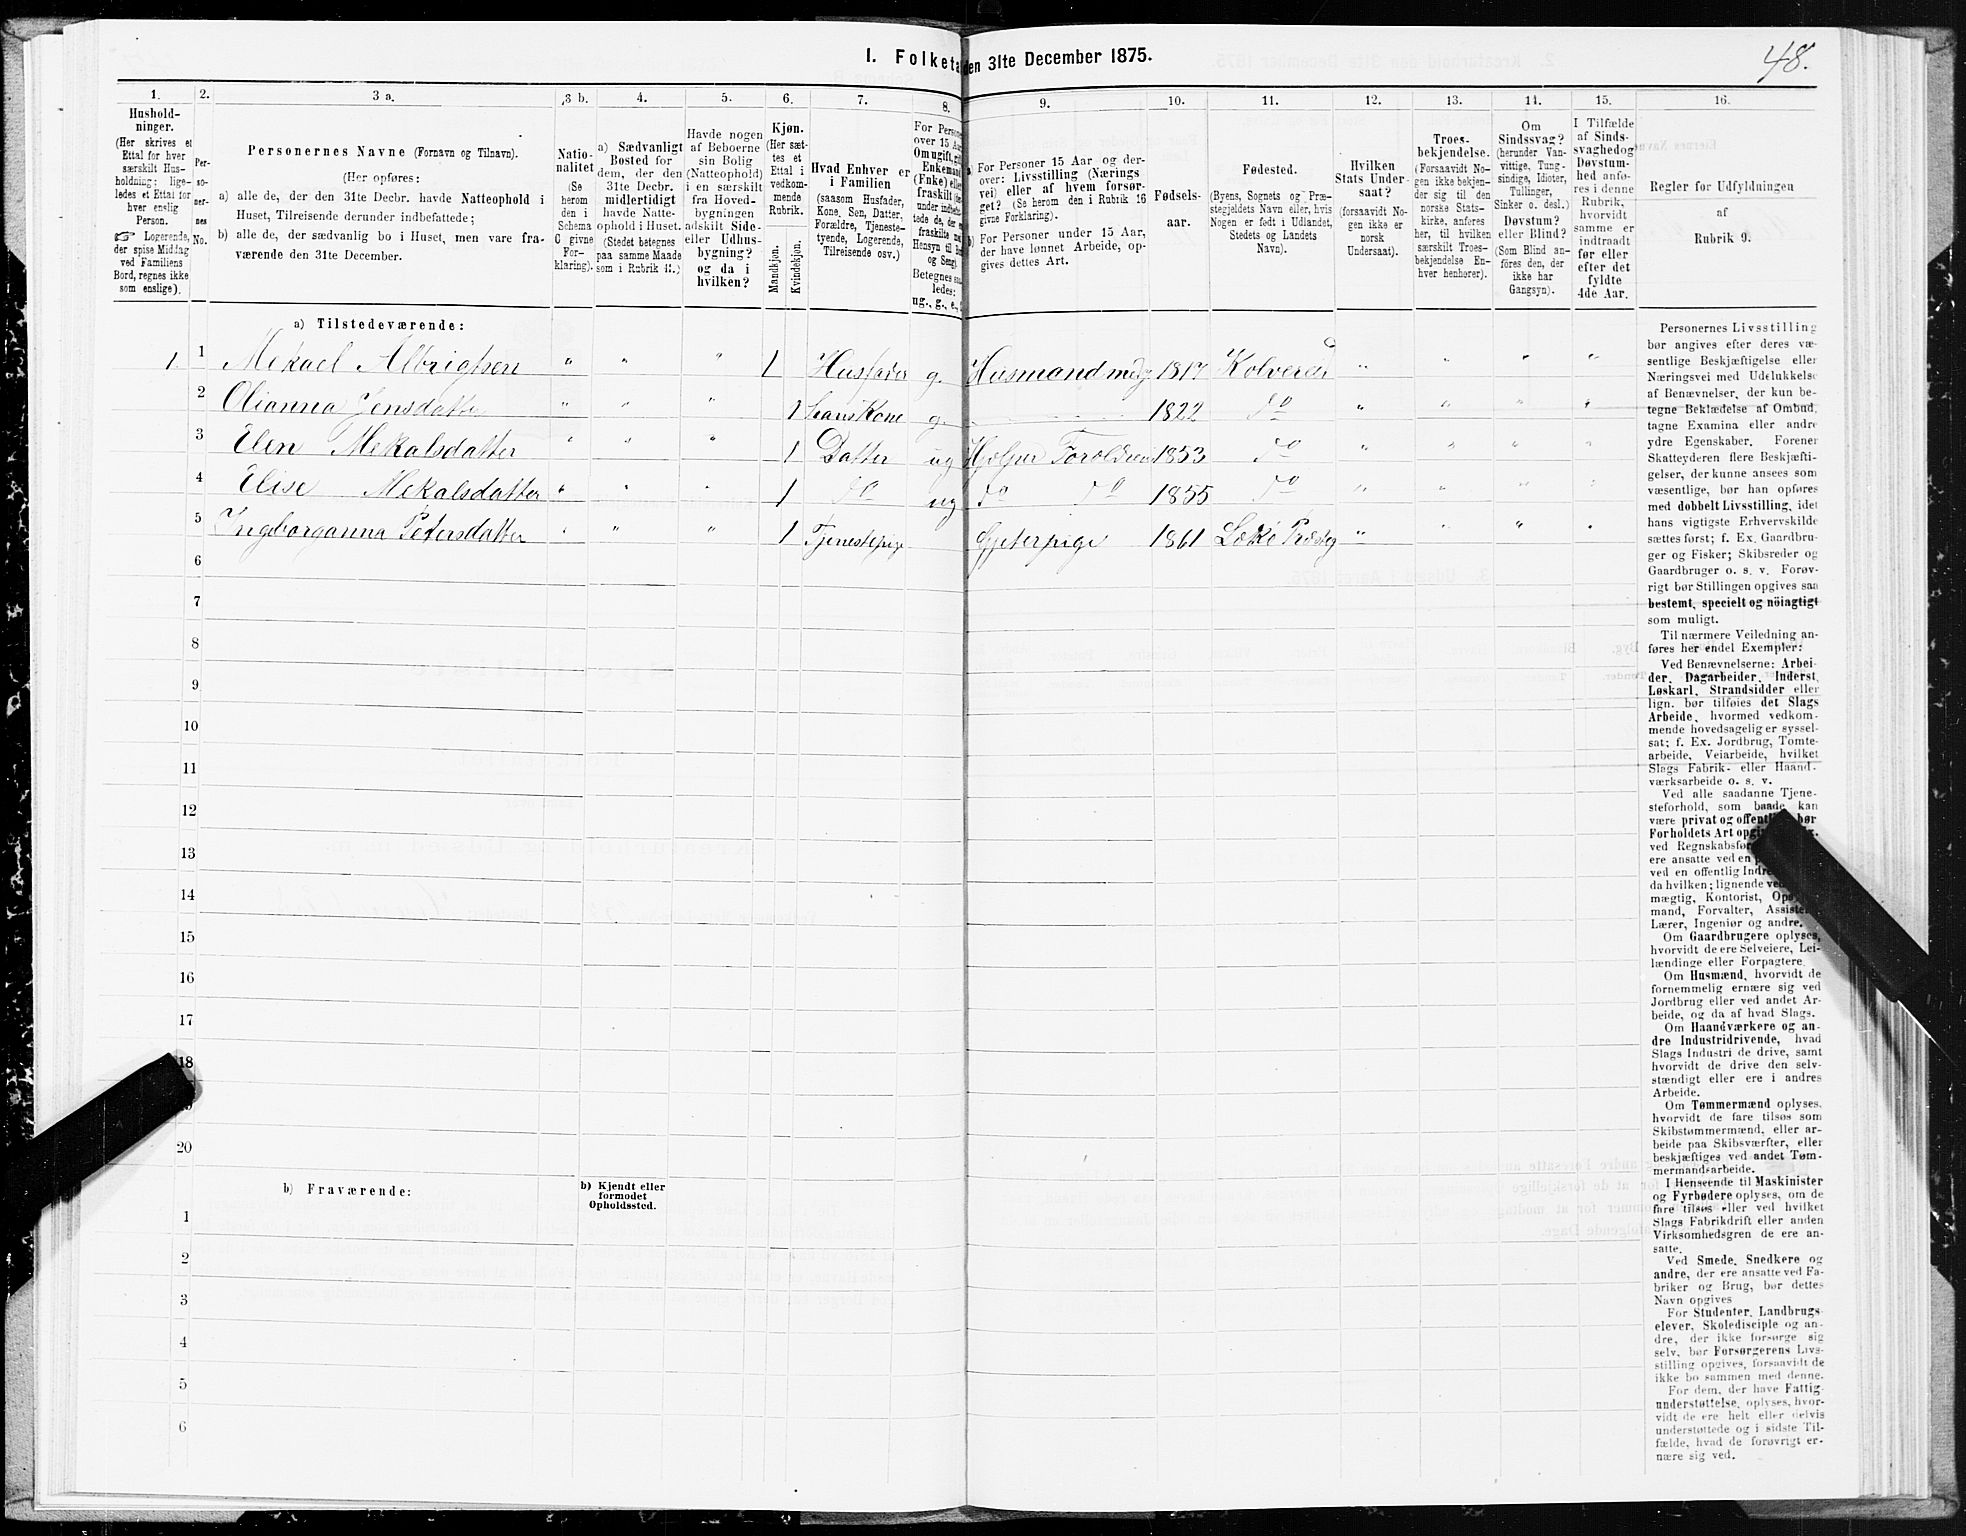 I. Folketa den 31te December 1875.
48.
1. 2. 3 a. 3 b. 4. 5. 6. 7. 8. 9. 10. 11. 12. 13. 14. 15. 16.
Hushold-
ninger.
(Her skrives et
Ettal for hver
særskilt Hus-
holdning; lige-
ledes et Ettal for
hver enslig
Person.
☞ Logerende,
der spise Middag
ved Familiens
Bord, regnes ikke
som enslige).
Per-
so-
ner-
nes
No.
Personernes Navne (Fornavn og Tilnavn).
(Her opføres:
a) alle de, der den 31te Decbr. havde Natteophold i
Huset, Tilreisende derunder indbefattede;
b) alle de, der sædvanlig bo i Huset, men vare fra-
værende den 31te December.
Natio-
nalitet
(Se
herom
den i
Schema
C givne
For-
klaring).
a) Sædvanligt
Bosted for
dem, der den
31te Decbr.
midlertidigt
havde Natte-
ophold i Huset.
(Stedet betegnes
paa samme Maade
som i Rubrik 11.)
Havde nogen
af Beboerne
sin Bolig
(Natteophold)
i en særskilt
fra Hoved-
bygningen
adskilt Side-
eller Udhus-
bygning?
og da i
hvilken?
Kjøn.
(Her sæt-
tes et
Ettal i
vedkom-
mende
Rubrik.
Mandkjøn.
Kvindekjøn.
Hvad Enhver er
i Familien
(saasom Husfader,
Kone, Søn, Datter,
Forældre, Tjeneste-
tyende, Logerende,
Tilreisende osv.)
For Persone
over 15 Aar
Om ugift, gif
Enkemand
(Enke) elle
fraskilt
under indbe
tede de, der e
fraskilte me
Hensyn til Bo
og Seng).
Betegnes saa
ledes:
ug., g., e.,
a) For Personer 15 Aar og der-
over: Livsstilling (Nærings
vei) eller af hvem forsør-
get? (Se herom den i Rubrik 16
givne Forklaring).
b) For Personer under 15 Aar,
der have lønnet Arbeide, op-
gives dettes Art.
Fødsels-
aar.
Fødested.
(Byens, Sognets og Præ-
stegjeldets Navn eller, hvis
Nogen er født i Udlandet,
Stedets og Landets
Navn).
Hvilken
Stats Under-
saat?
(forsaavidt No-
gen ikke er
norsk
Undersaat).
Troes-
bekjendelse.
(Forsaavidt No-
gen ikke bekjen-
der sig til den
norske Stats-
kirke, anføres
her, til hvilken
særskilt Troes-
bekjendelse En-
hver henhører).
Om
Sindssvag?
(herunder Van-
vittige, Tung-
sindige, Idioter,
Tullinger,
Sinker o. desl.)
Døvstum?
eller Blind?
(Som Blind an-
føres den, der
ikke har
Gangsyn).
I Tilfælde
af Sinds-
svaghed og
Døvstum-
hed anfø-
res i denne
Rubrik,
hvorvidt
samme er
indtraadt
før eller
efter det
fyldte
4de Aar.
Regler for Udfyldningen
af
Rubrik 9.
a) Tilstedeværende:
1. 1 Mekael Albrigtsen " " " 1 Husfader g. Husmand 1817 Kolveren " " " "
2 Olianna Jensdatter " " " 1 hans Kone g. 1822 do " " " "
3 Elen Mekalsdatter " " " 1 Datter ug Hjelper Foroldren 1853 do " " " "
4 Elise Mekalsdatter " " " 1 do ug do do 1855 do " " " "
5 Ingborganna Petersdatter " " " 1 Tjenestepige Gjeterpige 1861 Leke Præsteg " " " "
6
7
8
9
10
11
12
13
14
15
16
17
18
20
b) Fraværende:
b) Kjendt eller
formodet
Opholdssted.
1
2
3
4
5
6
Personernes Livsstilling
bør angives efter deres væ-
sentlige Beskjæftigelse eller
Næringsvei med Udelukkelse
af Benævnelser, der kun be-
tegne Beklædelse af Ombud,
tagne Examina eller andre
ydre Egenskaber. Forener
Skatteyderen flere Beskjæfti-
gelser, der kunne ansees som
væsentlige, bør han opføres
med dobbelt Livsstilling, idet
hans vigtigste Erhvervskilde
sættes først; f. Ex. Gaardbru-
ger og Fisker; Skibsreder og
Gaardbruger o. s. v. Forøv-
rigt bør Stillingen opgives saa
bestemt, specielt og nöiagtigt
som muligt.
Til nærmere Veiledning an-
føres her endel Exempler:
Ved Benævnelserne: Arbei-
der, Dagarbeider, Inderst,
Løskarl, Strandsidder eller
lign. bør tilføies det Slags
Arbeide, hvormed vedkom-
mende hovedsagelig er syssel-
sat; f. Ex. Jordbrug, Tomte-
arbeide, Veiarbeide, hvilket
Slags Fabrik- eller Haand-
værksarbeide o. s. v.
Ved alle saadanne Tjene-
steforhold, som baade kan
være privat og offentlig, bør
Forholdets Art
ved Regnskabsfør
ere ansatte ved en
ved en offentlig
da hvilken; lignende
mægtig, Kontorist,
mand, Forvalter, Assistent,
Lærer, Ingeniør og andre.
Om Gaardbrugere oplyses,
hvorvidt de ere Selveiere, Lei-
lændinge eller Forpagtere.
Om Husmænd, hvorvidt de
fornemmelig ernære sig ved
Jordbrug eller ved andet Ar-
beide, og da af hvad Slags.
Om Haandværkere og an-
dre Industridrivende, hvad
Slags Industri de drive, samt
hvorvidt de drive den selv-
stændigt eller ere i andres
Arbeide.
Om Tømmermænd oplyses,
hvorvidt de fare tilsøs som
Skibstømmermænd, eller ar-
beide paa Skibsværfter, eller
beskjæftiges ved andet Tøm-
mermandsarbeide.
I Henseende til Maskinister
og Fyrbødere oplyses, om de
fare tilsøs eller ved hvilket
Slags Fabrikdrift eller anden
Virksomhedsgren de ere an-
satte.
Ved Smede, Snedkere og
andre, der ere ansatte ved Fa-
briker og Brug, bør dettes
Navn opgives
For Studenter, Landbrugs-
elever, Skoledisciple og an-
dre, der ikke forsørge sig
selv, bør Forsørgerens Livs-
stilling opgives, forsaavidt de
ikke bo sammen med denne.
For dem, der have Fattig-
understøttelse, oplyses, hvor-
vidt de ere helt eller delvis
understøttede og i sidste Til-
fælde, hvad de forøvrigt er-
nære sig ved.